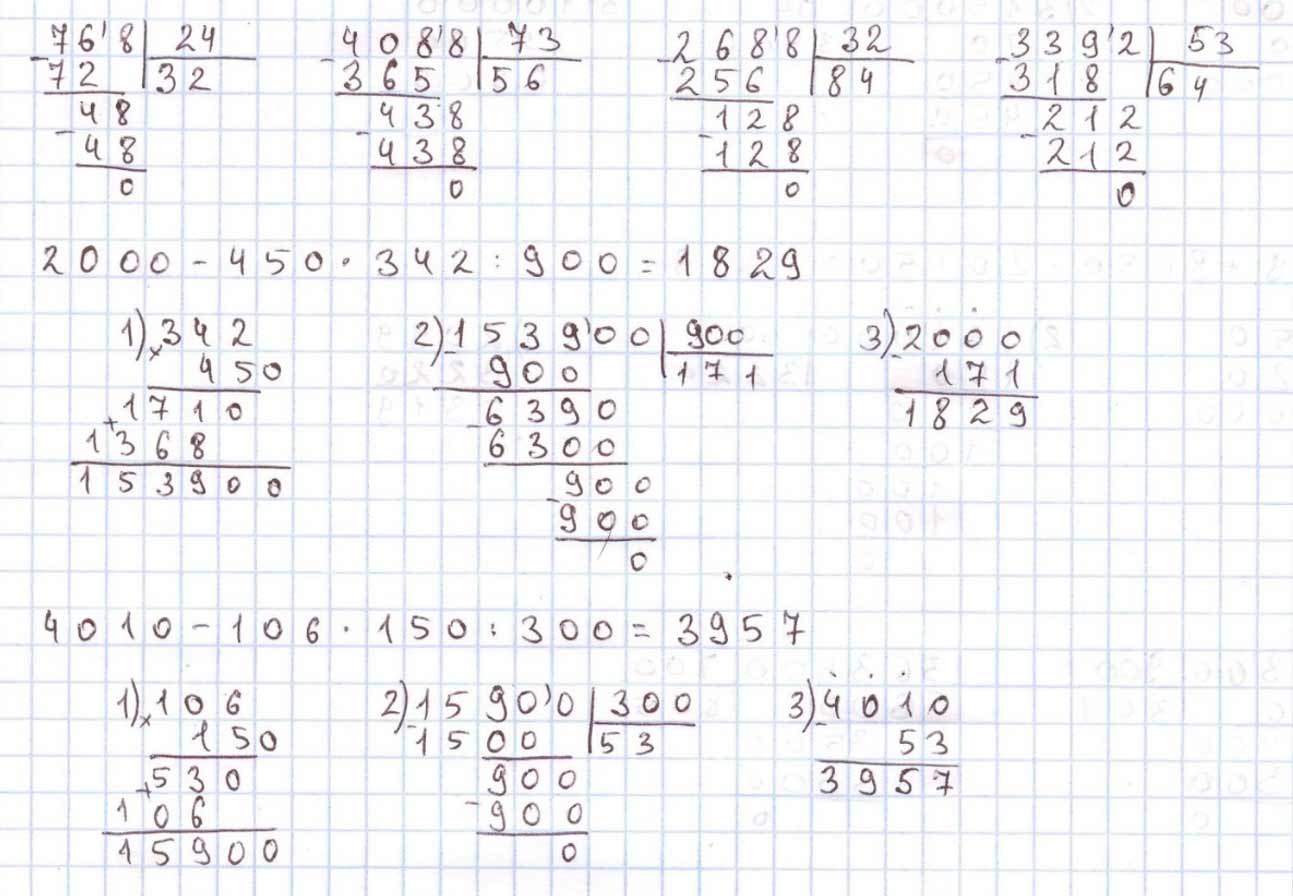 76'8 | 24   408'8 | 73   268'8 | 32   339'2 | 53
-72 | 32   -365 | 56   -256 | 84   -318 | 64
48   438   128   212
-48   -438   -128   -212
0   0   0   0
2000 - 450 · 342 : 900 = 1829
1) × 342   2) 1539'00 | 900   3) 2000
450   - 900 | 171   - 171
1710   6390   1829
+ 1368   - 6300
153900   900
- 900
0
4010 - 106 · 150 : 300 = 3957
1) × 106   2) 1590'0 | 300   3) 4010
150   - 1500 | 53   - 53
530   900   3957
+ 106   - 900
15900   0